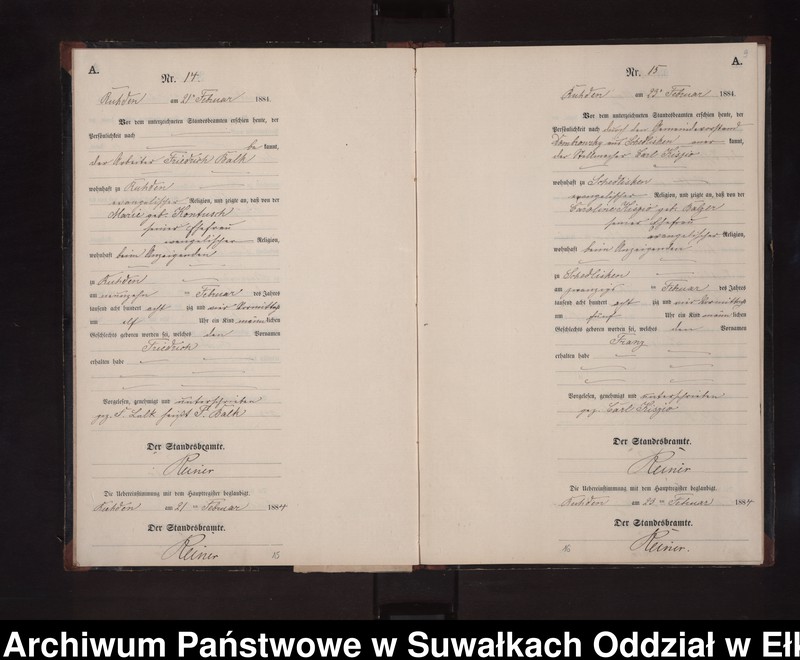 A.
Nr. 14.
Ruhden am 21n Februar 1884.
Vor dem unterzeichneten Standesbeamten erschien heute, der
Persönlichkeit nach
be kannt,
der Arbeiter Friedrich Balk
wohnhaft zu Ruhden
evangelischer Religion, und zeigte an, daß von der
Marie geb. Kontusch
seiner Ehefrau
evangelischer Religion,
wohnhaft beim Anzeigenden
zu Ruhden
am neunzehn ten Februar des Jahres
tausend acht hundert acht zig und vier Vormittags
um elf Uhr ein Kind männ lichen
Geschlechts geboren worden sei, welches den Vornamen
Friedrich
erhalten habe
Vorgelesen, genehmigt und unterschrieben
gez. F. Balk heißt F. Balk
Der Standesbeamte.
Reiner
Die Uebereinstimmung mit dem Hauptregister beglaubigt.
Ruhden am 21 ten Februar 1884
Der Standesbeamte.
Reiner
15
A.
9
Nr. 15
Ruhden am 23n Februar 1884.
Vor dem unterzeichneten Standesbeamten erschien heute, der
Persönlichkeit nach durch den Gemeindevorstand
aus Schedlisken aner kannt,
der Stellmacher Carl
wohnhaft zu Schedlisken
evangelischer Religion, und zeigte an, daß von der
Caroline geb. Balzer
seiner Ehefrau
evangelischer Religion,
wohnhaft beim Anzeigenden
zu Schedlisken
am zwanzigs ten Februar des Jahres
tausend acht hundert acht zig und vier Vormittags
um fünf Uhr ein Kind männ lichen
Geschlechts geboren worden sei, welches den Vornamen
Franz
erhalten habe
Vorgelesen, genehmigt und unterschrieben
gez. Carl
Der Standesbeamte.
Reiner
Die Uebereinstimmung mit dem Hauptregister beglaubigt.
Ruhden am 23 ten Februar 1884
Der Standesbeamte.
Reiner.
16
Archiwum Państwowe w Suwałkach Oddział w Ełk